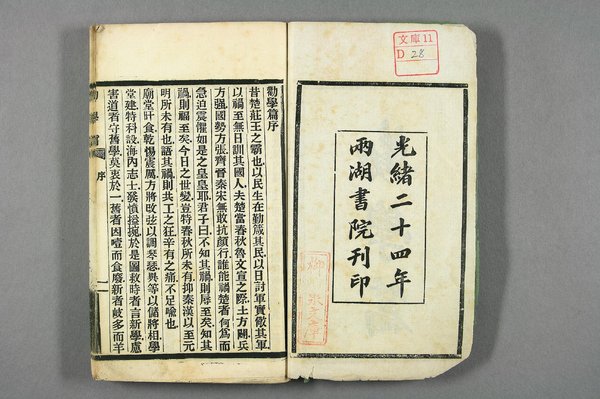 文庫11
D 28
光緒二十四年
兩湖書院刊印
勸學篇序
昔楚莊王之霸也以民生在勤箴其民以日討軍實儆其軍
以禍至無日訓其國人夫楚當春秋魯文宣之際土方闢兵
方强國勢方張齊晉秦宋無敢抗顏行誰能禍楚者何爲而
急迫震懼如是之皇皇耶君子曰不知其禍則辱至矣知其
禍則福至矣今日之世變豈特春秋所未有抑秦漢以至元
明所未有也語其禍則共工之狂辛有之痛不足喻也
廟堂旰食乾惕震厲方將改弦以調琴瑟異等以儲將相學
堂建特科設海內志士發憤搤捥於是圖救時者言新學慮
害道者守舊學莫衷於一舊者因噎而食廢新者歧多而羊
勸學篇 序 一